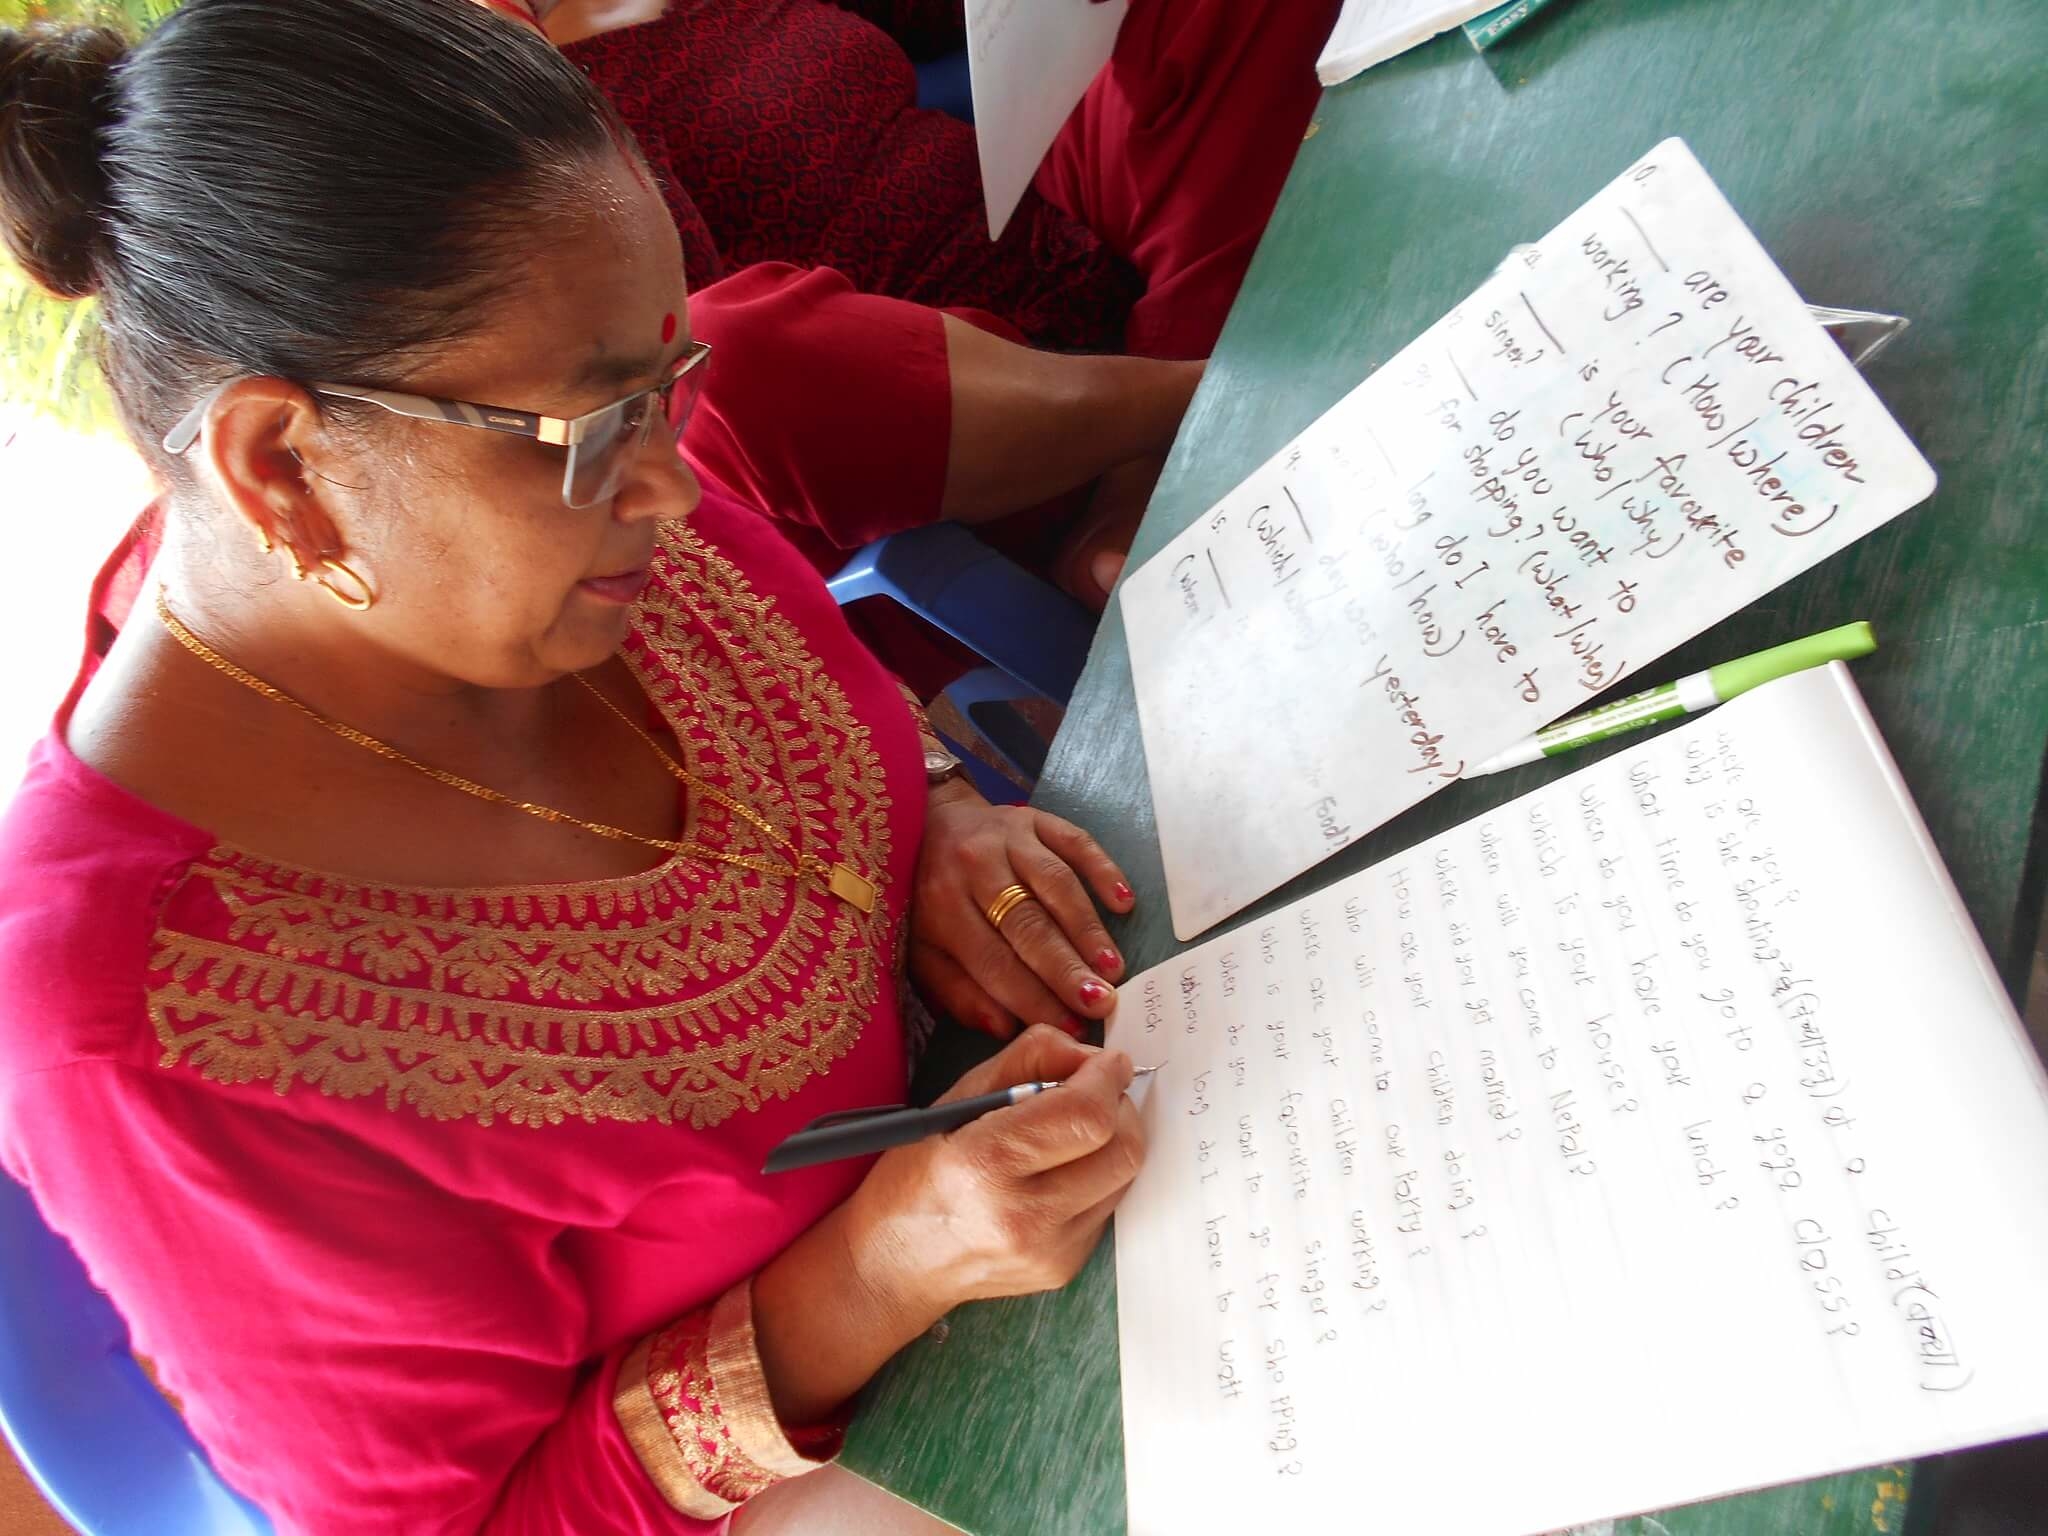 10. ____ are your children
working? (How/where)
____ is your favourite
singer? (who/why)
____ do you want to
go for shopping? (what/when)
____ long do I have to
wait? (who/how)
14. ____ day was yesterday?
(which/when)
15. ____ is
food?
where are you?
why is she shouting to a child
what time do you go to a yoga class?
when do you have your lunch?
which is your house?
when will you come to Nepal?
where did you get married?
How are your children doing?
who will come to our Party?
where are your children working?
who is your favourite singer?
when do you want to go for shopping?
how long do I have to wait
which
Easy